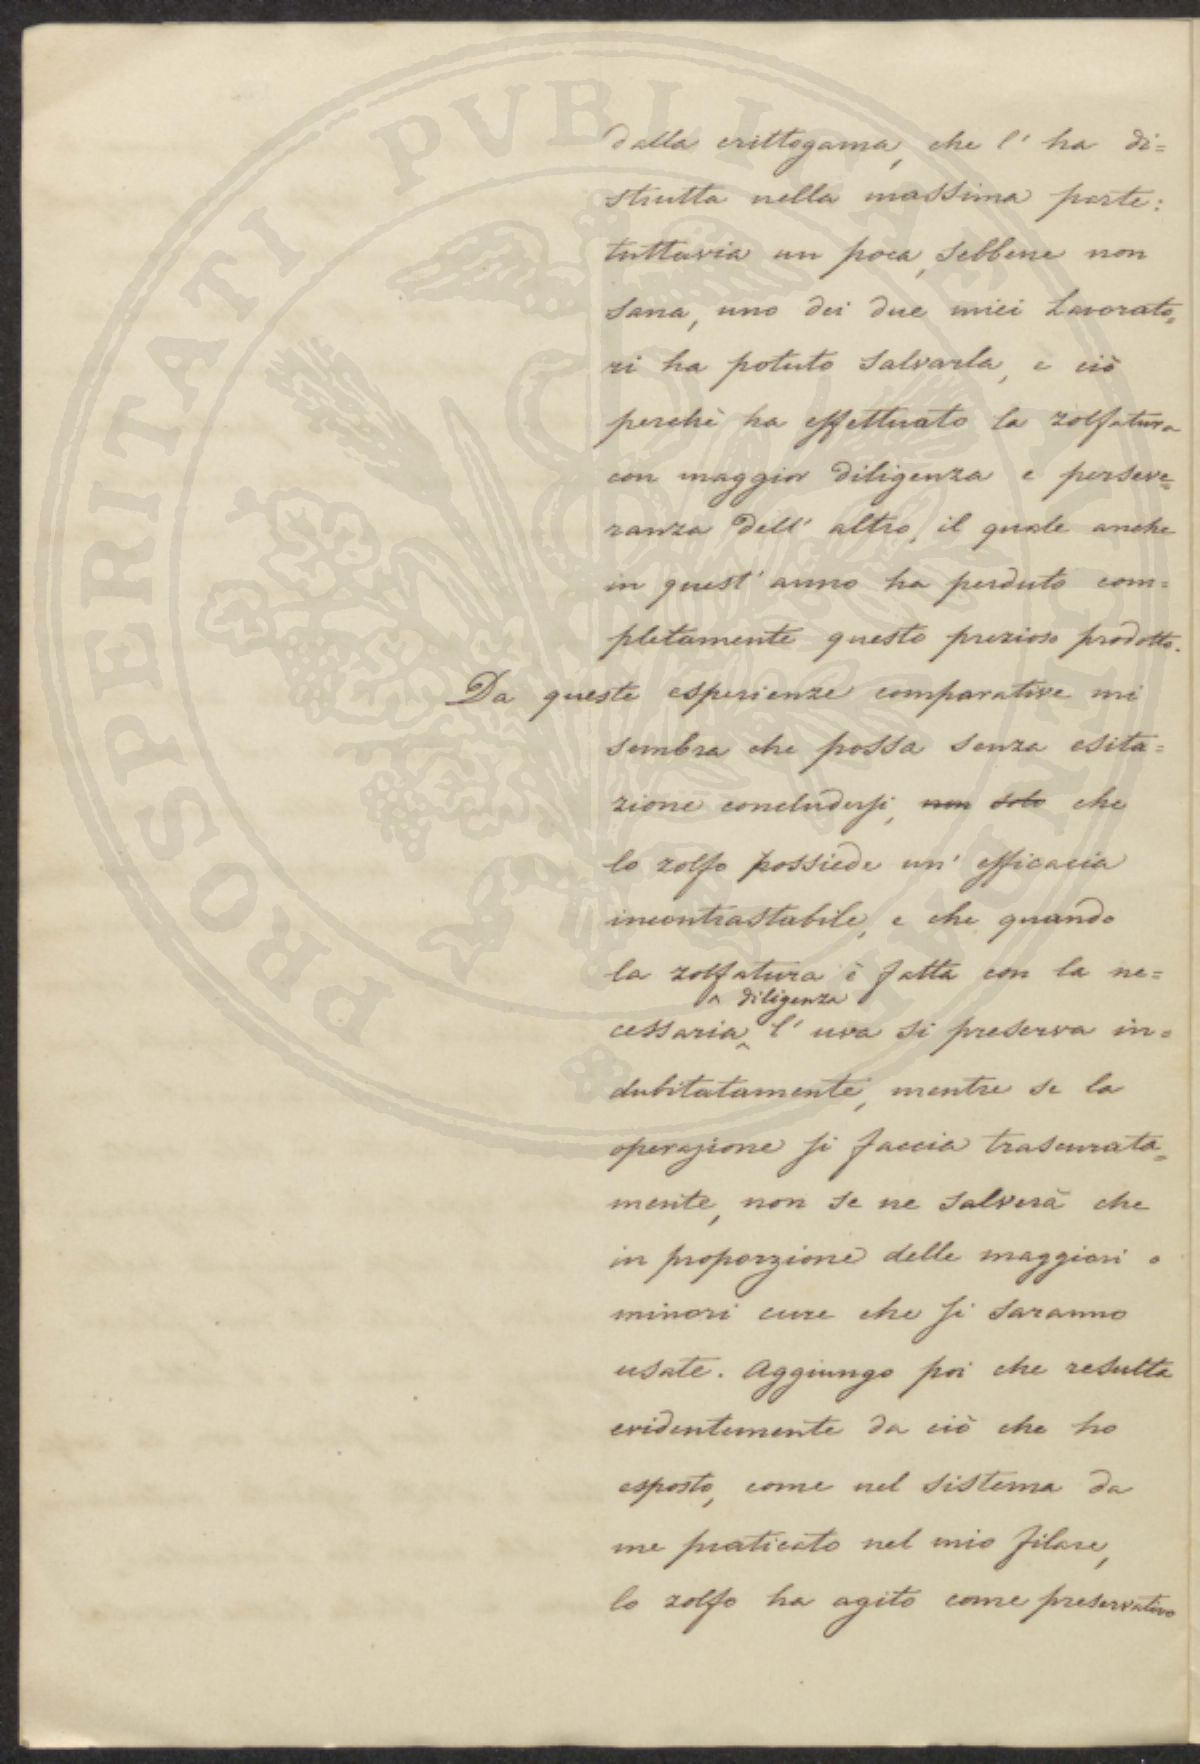 PROSPERITATI PVBLICAE AVGENDAE
dalla crittogama, che l' ha di=
strutta nella massima parte:
tuttavia un poca, sebbene non
sana, uno dei due miei Lavorato=
ri ha potuto salvarla, e ciò
perchè ha effettuato la zolfatura
con maggior diligenza e perseve=
ranza dell' altro, il quale anche
in quest' anno ha perduto com=
pletamente questo prezioso prodotto.
Da queste esperienze comparative mi
sembra che possa senza esita=
zione concludersi, non solo che
lo zolfo possiede un' efficacia
incontrastabile, e che quando
la zolfatura è fatta con la ne=
^ diligenza
cessaria ^ l' uva si preserva in=
dubitatamente, mentre se la
operazione si faccia trascurata=
mente, non se ne salverà che
in proporzione delle maggiori o
minori cure che si saranno
usate. Aggiungo poi che resulta
evidentemente da ciò che ho
esposto, come nel sistema da
me praticato nel mio filare,
lo zolfo ha agito come preservativo